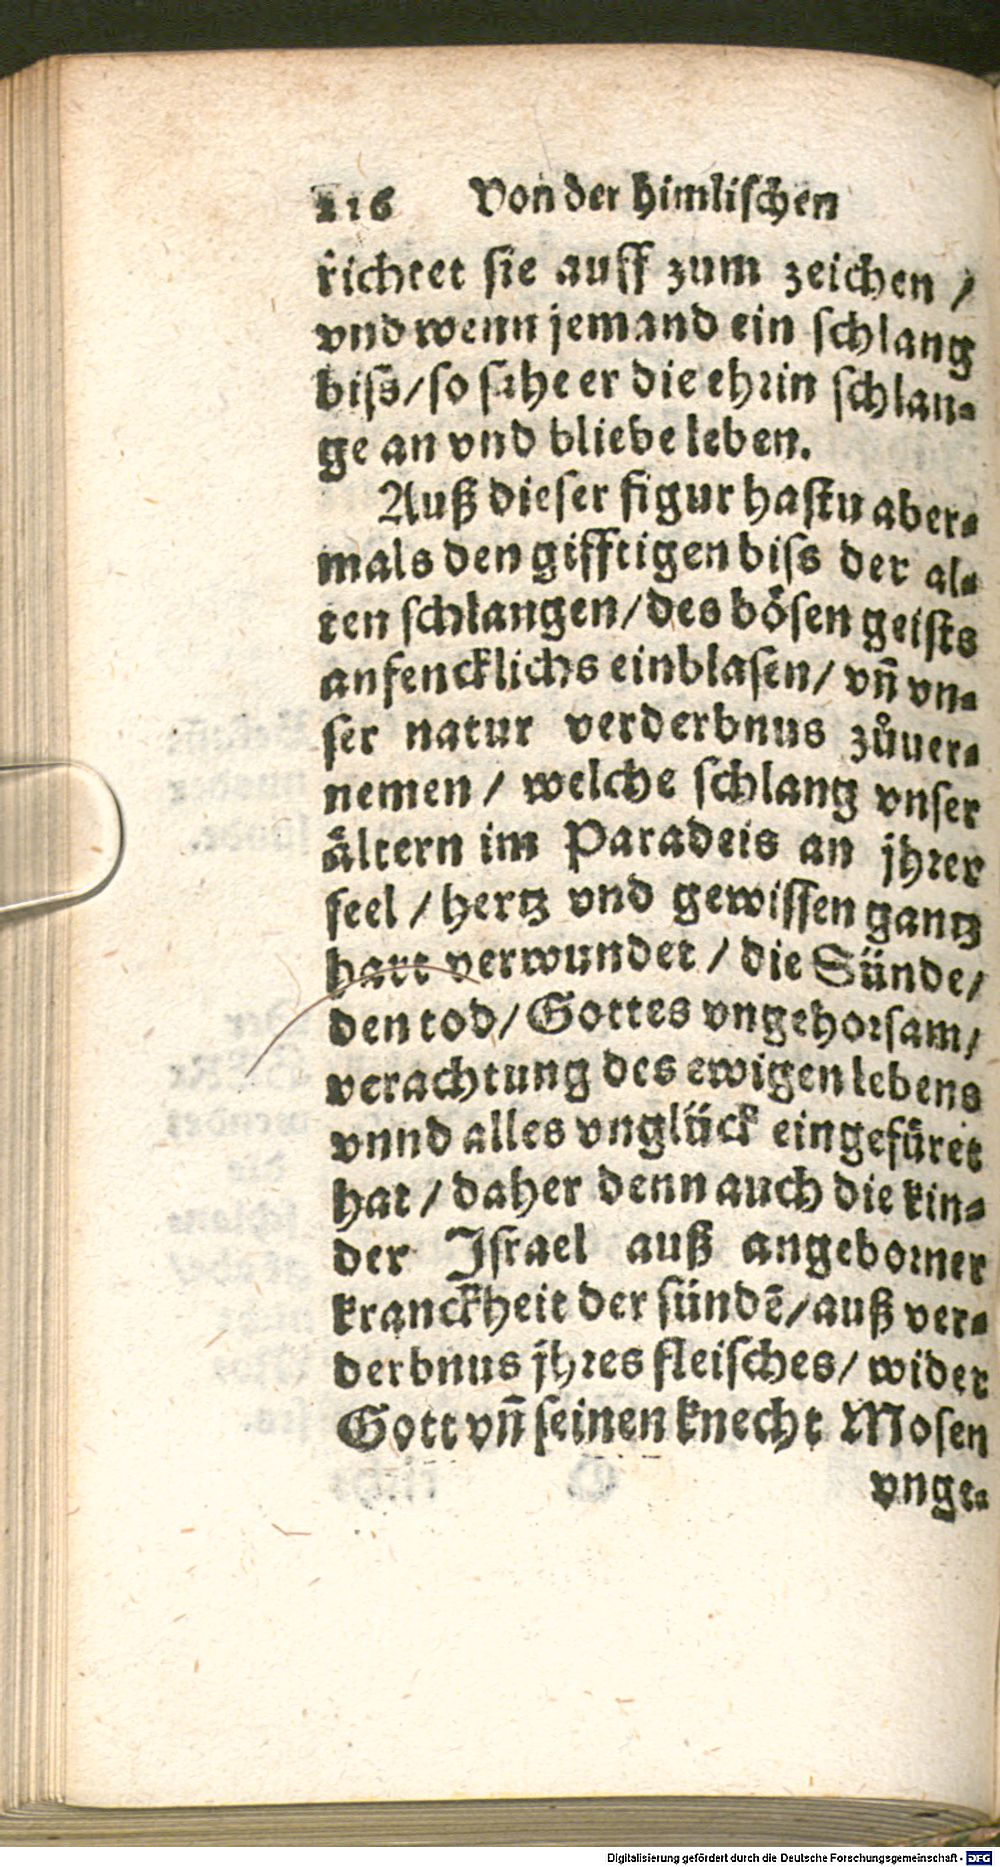 216 Von der himlischen
richtet sie auff zum zeichen /
vnd wenn jemand ein schlang
biss/ so sahe er die ehrin schlan⸗
ge an vnd bliebe leben.
Auß dieser figur hastu aber⸗
mals den gifftigen biss der al⸗
ten schlangen/ des bösen geists
anfencklichs einblasen/ vñ vn⸗
ser natur verderbnus zůuer⸗
nemen / welche schlang vnser
ältern im Paradeis an jhrer
seel / hertz vnd gewissen gantz
hart verwundet / die Sünde/
den tod/ Gottes vngehorsam/
verachtung des ewigen lebens
vnnd alles vnglück eingefüret
hat / daher denn auch die kin⸗
der Israel auß angeborner
kranckheit der sündẽ/ auß ver⸗
derbnus jhres fleisches/ wider
Gott vñ seinen knecht Mosen
vnge⸗
Digitalisierung gefördert durch die Deutsche Forschungsgemeinschaft - DFG